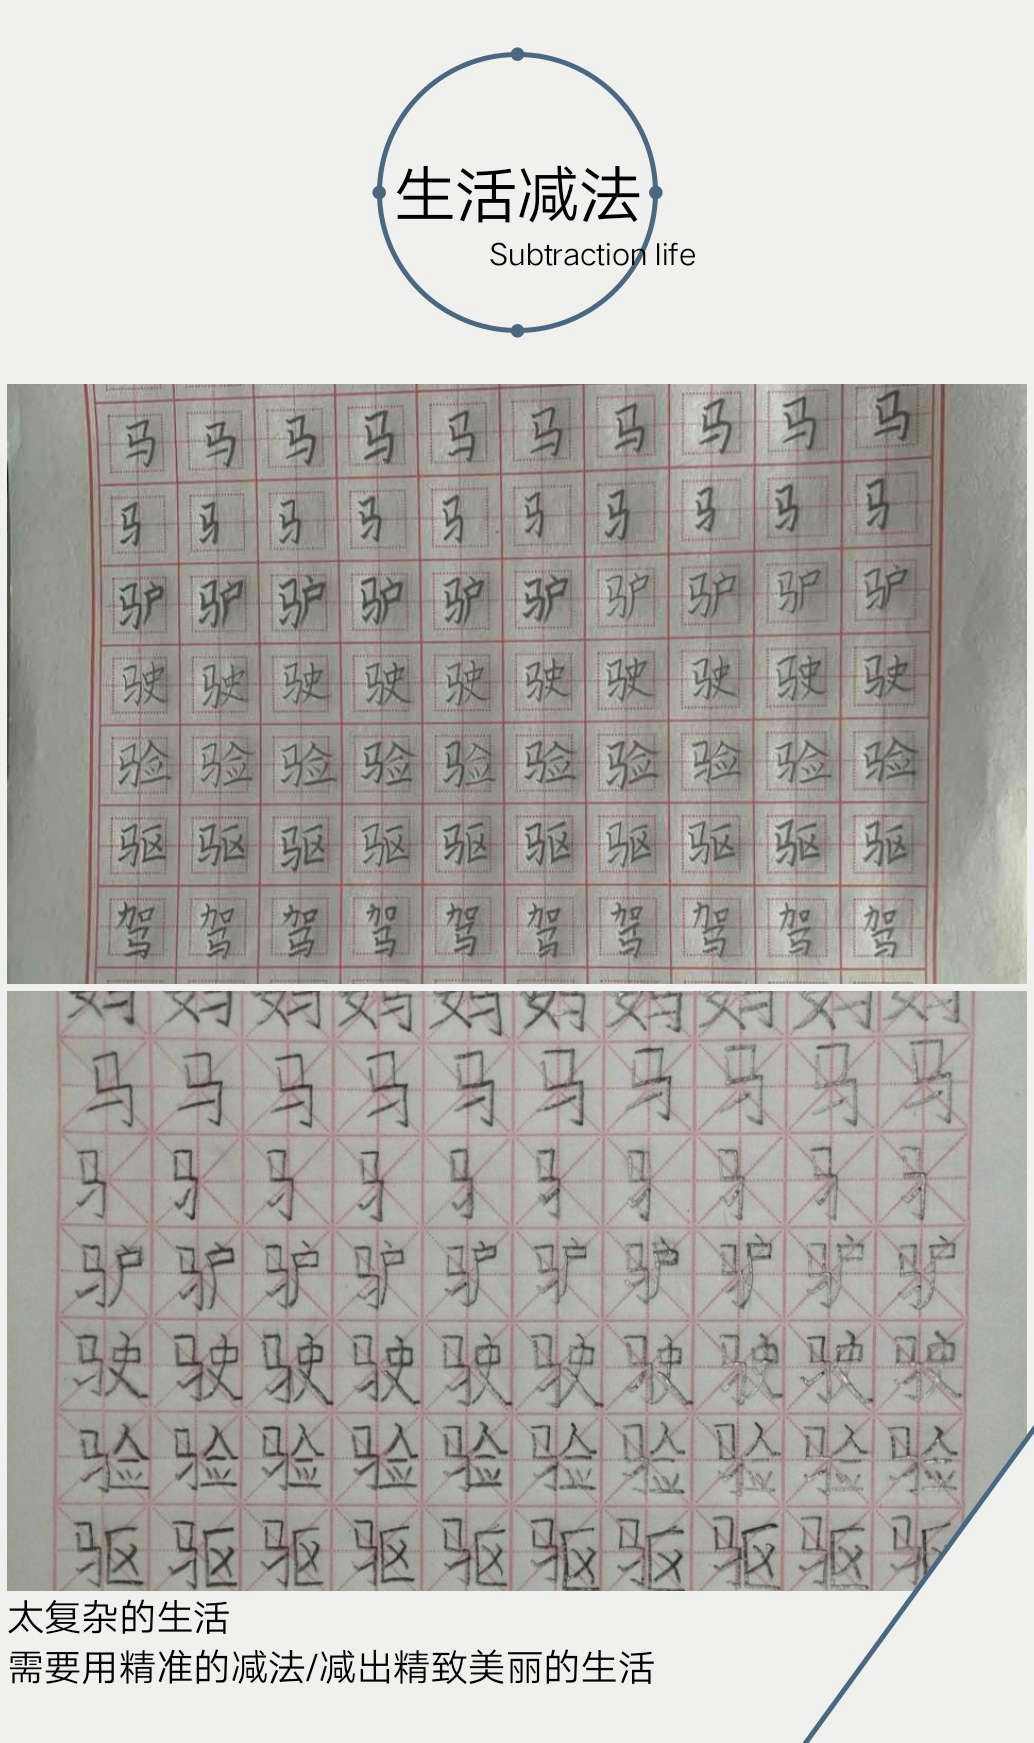 生活减法
Subtraction life
马 马 马 马 马 马 马 马 马 马
马 马 马 马 马 马 马 马 马 马
驴 驴 驴 驴 驴 驴 驴 驴 驴 驴
驶 驶 驶 驶 驶 驶 驶 驶 驶 驶
验 验 验 验 验 验 验 验 验 验
驱 驱 驱 驱 驱 驱 驱 驱 驱 驱
驾 驾 驾 驾 驾 驾 驾 驾 驾 驾
妈 妈 妈 妈 妈 妈 妈 妈 妈 妈
马 马 马 马 马 马 马 马 马 马
马 马 马 马 马 马 马 马 马 马
驴 驴 驴 驴 驴 驴 驴 驴 驴 驴
驶 驶 驶 驶 驶 驶 驶 驶 驶 驶
验 验 验 验 验 验 验 验 验 验
驱 驱 驱 驱 驱 驱 驱 驱 驱 驱
太复杂的生活
需要用精准的减法/减出精致美丽的生活